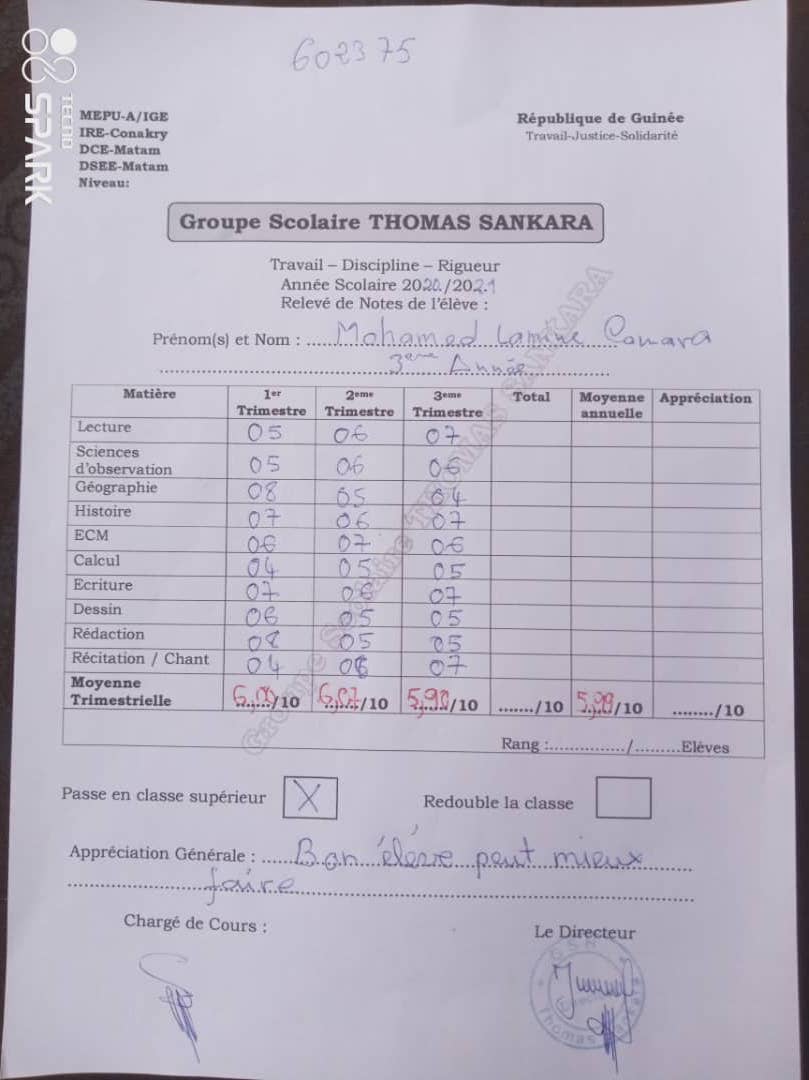 602375
TECNO
SPARK
MEPU-A/IGE
IRE-Conakry
DCE-Matam
DSEE-Matam
Niveau:
République de Guinée
Travail-Justice-Solidarité
Groupe Scolaire THOMAS SANKARA
Travail – Discipline – Rigueur
Année Scolaire 2020/2021
Relevé de Notes de l'élève :
Prénom(s) et Nom : ...... Mohamed Lamine Camara
3eme Année
Matière 1er Trimestre 2eme Trimestre 3eme Trimestre Total Moyenne annuelle Appréciation
Lecture 05 06 07
Sciences d'observation 05 06 06
Géographie 08 05 04
Histoire 07 06 07
ECM 06 07 06
Calcul 04 05 05
Ecriture 07 06 07
Dessin 06 05 05
Rédaction 08 05 05
Récitation / Chant 04 06 07
Moyenne Trimestrielle 6,00/10 /10 5,90/10 ......./10 5,99/10 ......../10
Rang :............../.........Elèves
Passe en classe supérieur X Redouble la classe
Appréciation Générale : ..... Bon élève peut mieux
faire
Chargé de Cours :
Le Directeur
Thomas Sankara
Groupe Scolaire THOMAS SANKARA